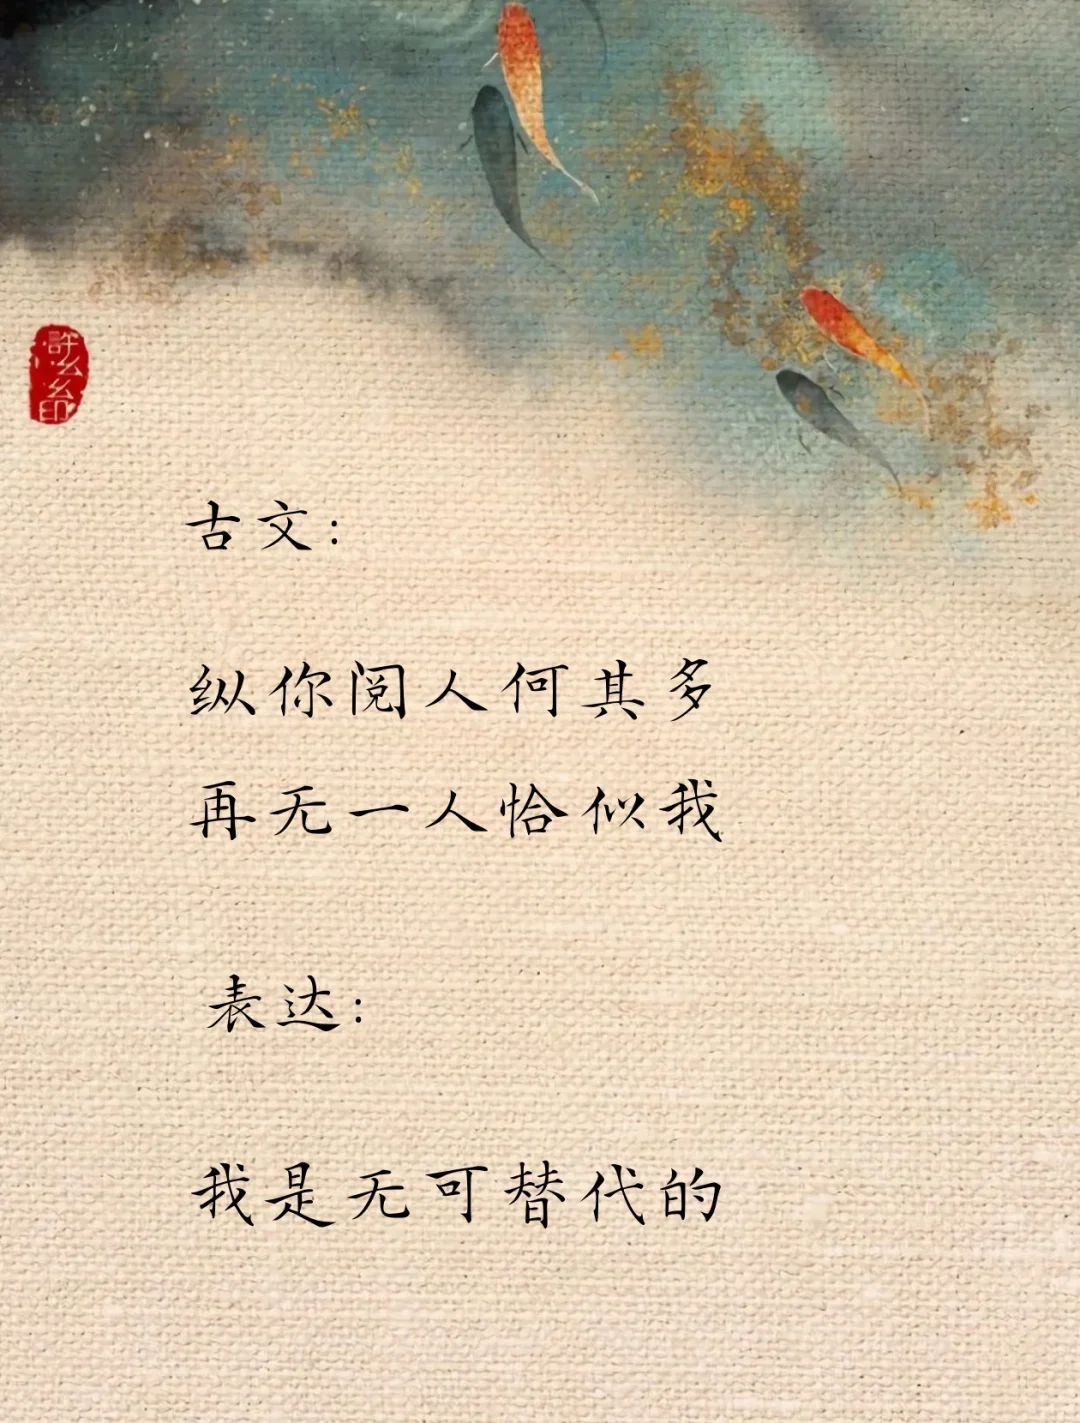 古文：
纵你阅人何其多
再无一人恰似我
表达：
我是无可替代的